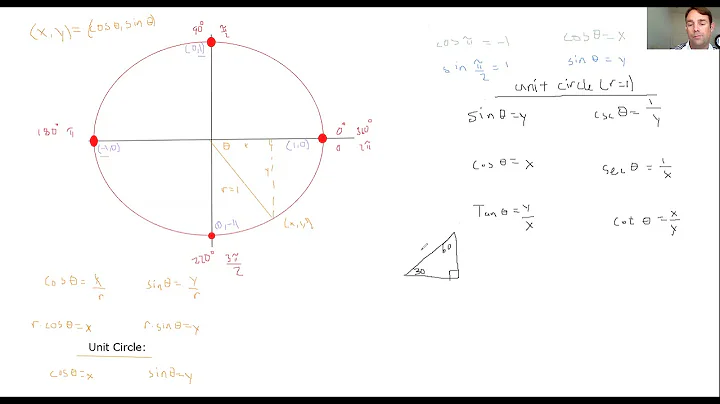 (x, y) = (cosθ, sinθ)
90° π/2
(0,1)
180° π
(-1,0)
θ x
(1,0)
0° 360°
0 2π
y
r=1
(x, y)
(0,-1)
270° 3π/2
cosθ = x/r
sinθ = y/r
r·cosθ=x
r·sinθ=y
Unit Circle:
cosθ=x
sinθ=y
cos π = -1
cosθ=x
sin π/2 = 1
sinθ = y
unit circle (r=1)
sinθ=y
cscθ = 1/y
cosθ = x
secθ = 1/x
Tanθ = y/x
cotθ = x/y
60
30